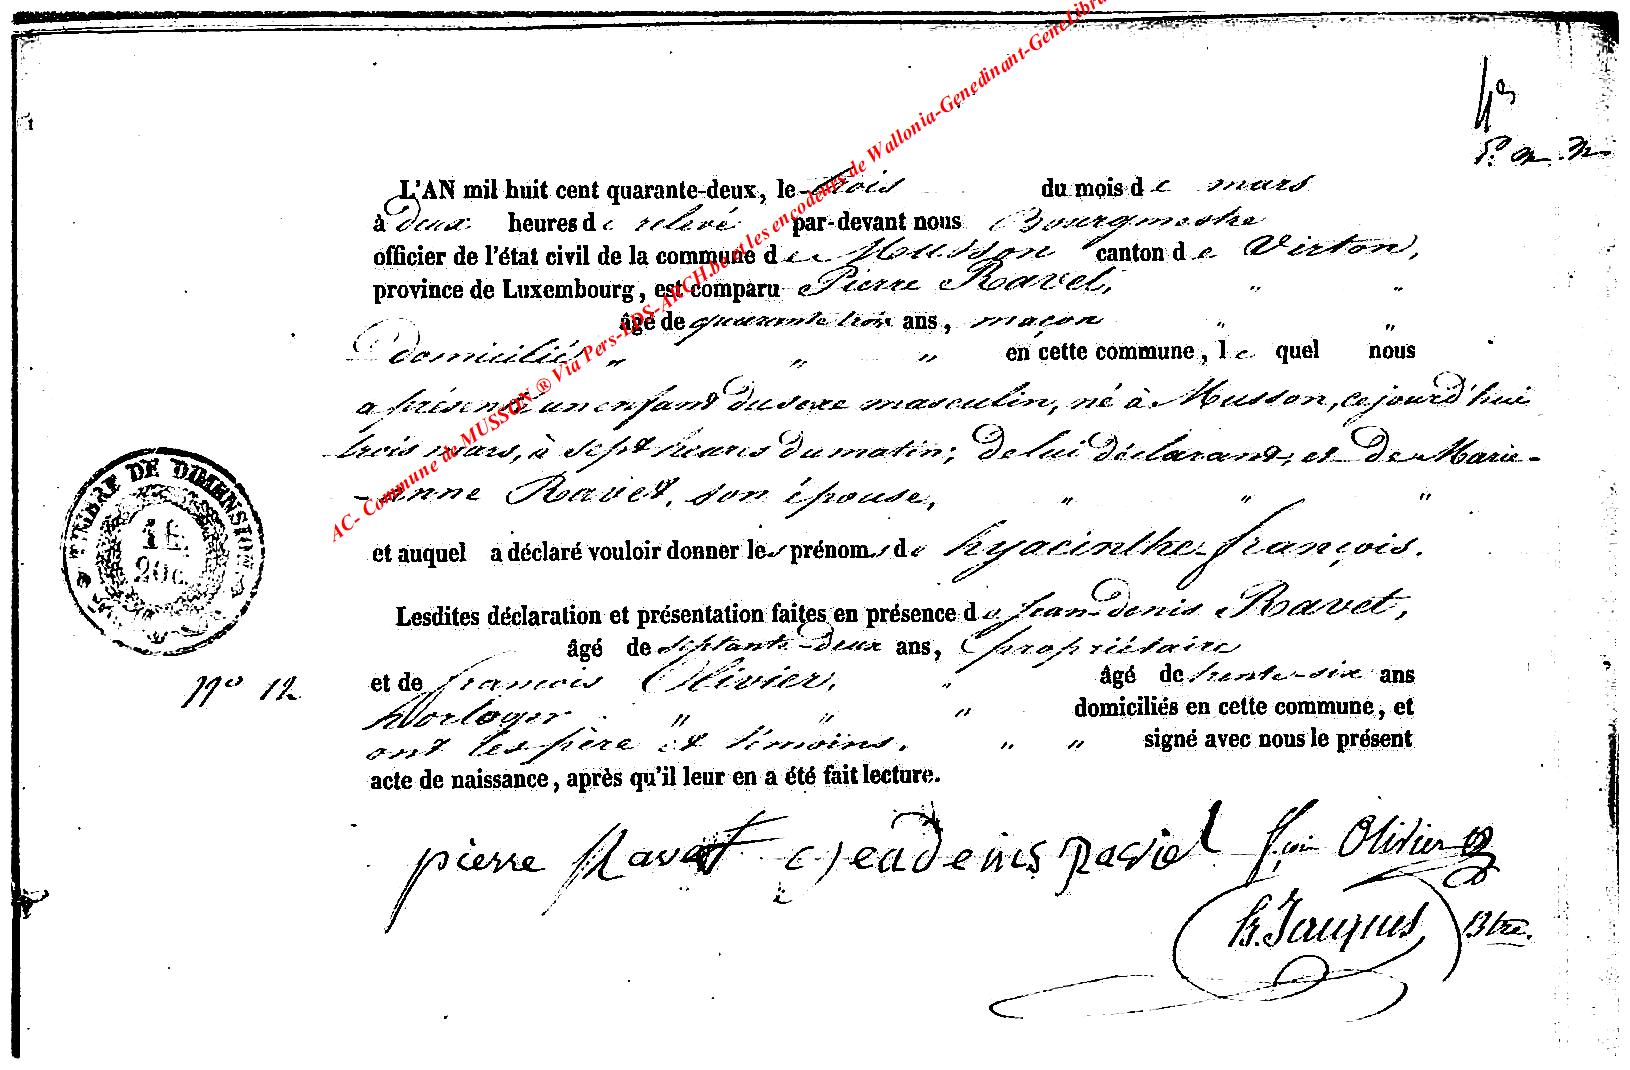 AC- Commune de MUSSON ® Via Pers-EDS-ARCH.be et les encodeurs de Wallonia-Genedinant-GeneLibra
L'AN mil huit cent quarante-deux, le trois du mois de mars
à deux heures de relevé par-devant nous Bourgmestre
officier de l'état civil de la commune de Musson canton de Virton,
province de Luxembourg, est comparu Pierre Ravet, " "
âgé de quarante trois ans, maçon " "
domicilié " " " en cette commune, lequel nous
a présenté un enfant du sexe masculin, né à Musson, ce jourd'hui
trois mars, à sept heures du matin; de lui déclarant, et de Marie-
-anne Ravet, son épouse, " " "
et auquel a déclaré vouloir donner les prénoms de hyacinthe françois.
Lesdites déclaration et présentation faites en présence de jean-denis Ravet,
âgé de septante-deux ans, propriétaire
et de françois Olivier, " âgé de trente-six ans
horloger " " " domiciliés en cette commune, et
ont les père et témoins, " " signé avec nous le présent
acte de naissance, après qu'il leur en a été fait lecture.
TIMBRE DE DIMENSION
20c.
N° 12
pierre Ravet Olivier
h. Jacques Btre.